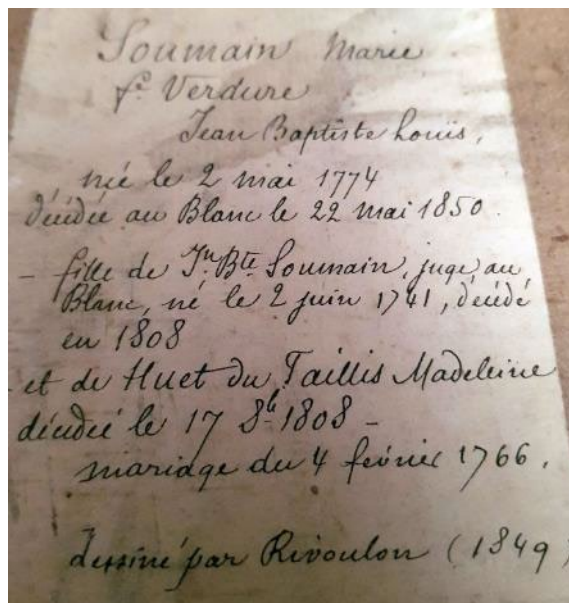 Soumain Marie
fe Verdure
Jean Baptiste Louis,
née le 2 mai 1774
décédée au Blanc le 22 mai 1850.
- fille de Jn Bte Soumain, juge au
Blanc, né le 2 juin 1741, décédé
en 1808
- et de Huet du Taillis Madeleine
décédée le 17 8bre 1808 -
mariage du 4 février 1766.
dessiné par Rivoulon (1849)